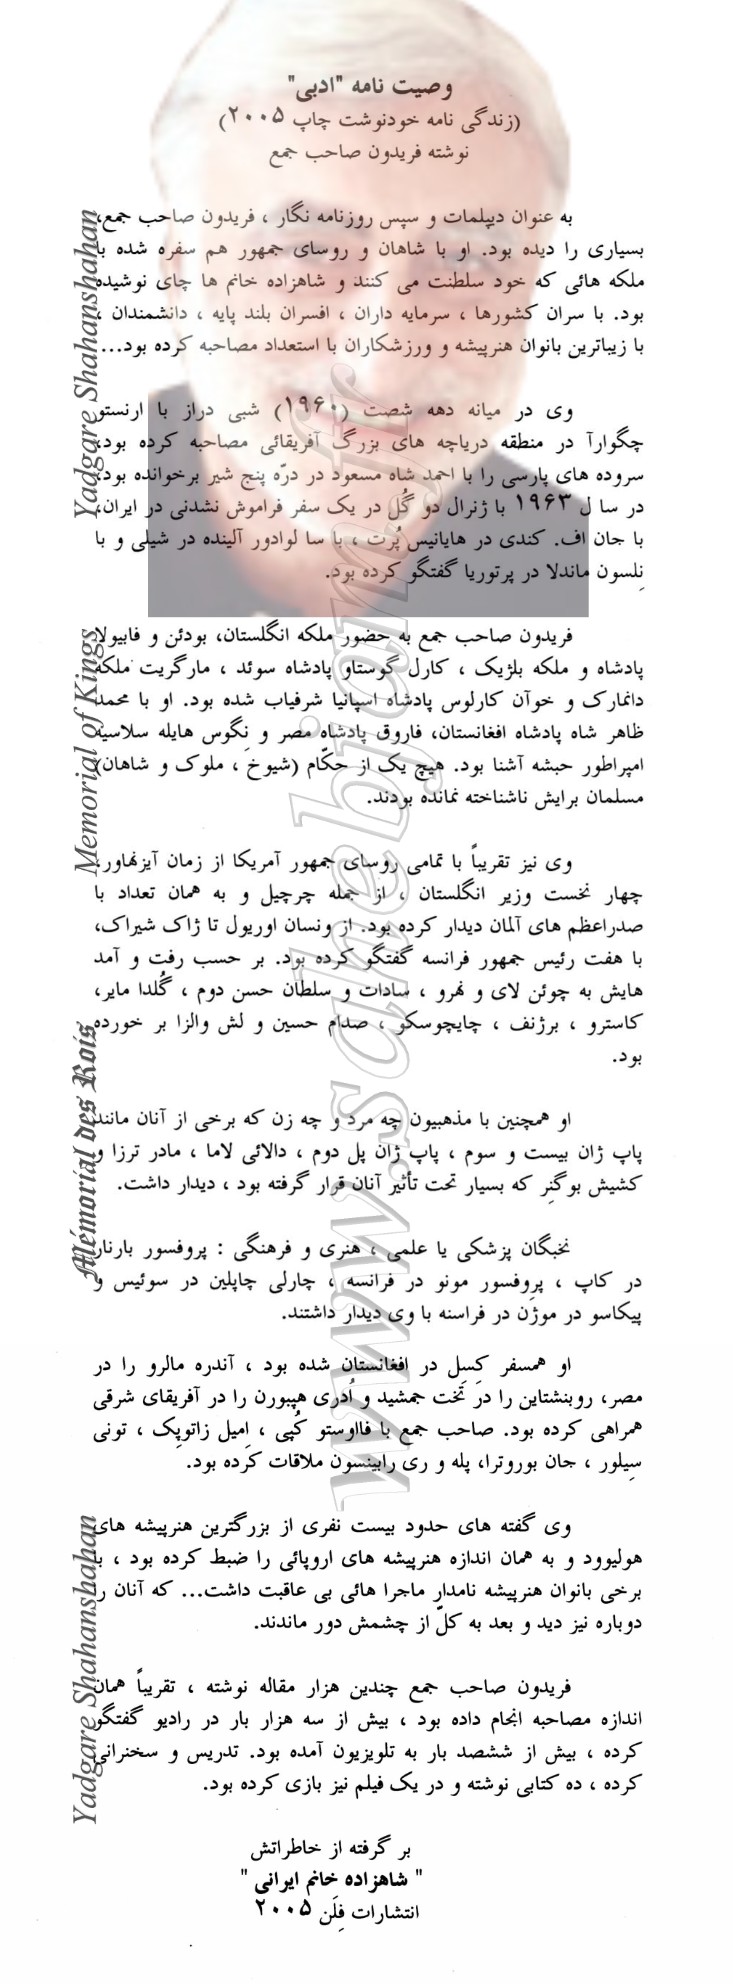 وصیت نامه "ادبی"
(زندگی نامه خودنوشت چاپ ۲۰۰۵)
نوشته فریدون صاحب جمع
به عنوان دیپلمات و سپس روزنامه نگار ، فریدون صاحب جمع،
بسیاری را دیده بود. او با شاهان و روسای جمهور هم سفره شده با
ملکه هائی که خود سلطنت می کنند و شاهزاده خانم ها چای نوشیده
بود. با سران کشورها ، سرمایه داران ، افسران بلند پایه ، دانشمندان ،
با زیباترین بانوان هنرپیشه و ورزشکاران با استعداد مصاحبه کرده بود...
وی در میانه دهه شصت (۱۹۶۰) شبی دراز با ارنستو
چگوارآ در منطقه دریاچه های بزرگ آفریقائی مصاحبه کرده بود،
سروده های پارسی را با احمد شاه مسعود در درّه پنج شیر برخوانده بود،
در سا ل ۱۹۶۳ با ژنرال دو گُل در یک سفر فراموش نشدنی در ایران،
با جان اف. کندی در هایانیس پُرت ، با سا لوادور آلینده در شیلی و با
نِلسون ماندلا در پرتوریا گفتگو کرده بود.
فریدون صاحب جمع به حضور ملکه انگلستان، بودئن و فابیولا
پادشاه و ملکه بلژیک ، کارل گوستاو پادشاه سوئد ، مارگریت ملکه
دانمارک و خوآن کارلوس پادشاه اسپانیا شرفیاب شده بود. او با محمد
ظاهر شاه پادشاه افغانستان، فاروق پادشاه مصر و نِگوس هایله سلاسیه
امپراطور حبشه آشنا بود. هیچ یک از حکّام (شیوخ ، ملوک و شاهان)
مسلمان برایش ناشناخته نمانده بودند.
وی نیز تقریباً با تمامی روسای جمهور آمریکا از زمان آیزنهاور،
چهار نخست وزیر انگلستان ، از جمله چرچیل و به همان تعداد با
صدراعظم های آلمان دیدار کرده بود. از ونسان اوریول تا ژاک شیراک،
با هفت رئیس جمهور فرانسه گفتگو کرده بود. بر حسب رفت و آمد
هایش به چوئن لای و نهرو ، سادات و سلطان حسن دوم ، گُلدا مایر،
کاسترو ، برژنف ، چایچوسکو ، صدام حسین و لش والزا بر خورده
بود.
او همچنین با مذهبیون چه مرد و چه زن که برخی از آنان مانند
پاپ ژان بیست و سوم ، پاپ ژان پل دوم ، دالائی لاما ، مادر ترزا و
کشیش بوگنِر که بسیار تحت تأثیر آنان قرار گرفته بود ، دیدار داشت.
نخبگان پزشکی یا علمی ، هنری و فرهنگی : پروفسور بارنار
در کاپ ، پروفسور مونو در فرانسه ، چارلی چاپلین در سوئیس و
پیکاسو در موژن در فراسنه با وی دیدار داشتند.
او همسفر کِسِل در افغانستان شده بود ، آندره مالرو را در
مصر، روبنشتاین را در تخت جمشید و اُدری هپبورن را در آفریقای شرقی
همراهی کرده بود. صاحب جمع با فااوستو کُپی ، اِمیل زاتوپِک ، تونی
سِیلور ، جان بوروترا، پله و ری رابینسون ملاقات کرده بود.
وی گفته های حدود بیست نفری از بزرگترین هنرپیشه های
هولیوود و به همان اندازه هنرپیشه های اروپائی را ضبط کرده بود ، با
برخی بانوان هنرپیشه نامدار ماجرا هائی بی عاقبت داشت... که آنان را
دوباره نیز دید و بعد به کلّ از چشمش دور ماندند.
فریدون صاحب جمع چندین هزار مقاله نوشته ، تقریباً همان
اندازه مصاحبه انجام داده بود ، بیش از سه هزار بار در رادیو گفتگو
کرده ، بیش از ششصد بار به تلویزیون آمده بود. تدریس و سخنرانی
کرده ، ده کتابی نوشته و در یک فیلم نیز بازی کرده بود.
بر گرفته از خاطراتش
" شاهزاده خانم ایرانی "
انتشارات فِلَن ۲۰۰۵
Yadgare Shahanshahan
Memorial of Kings
Mémorial des Rois
Yadgare Shahanshahan
www.sahebjam.fr